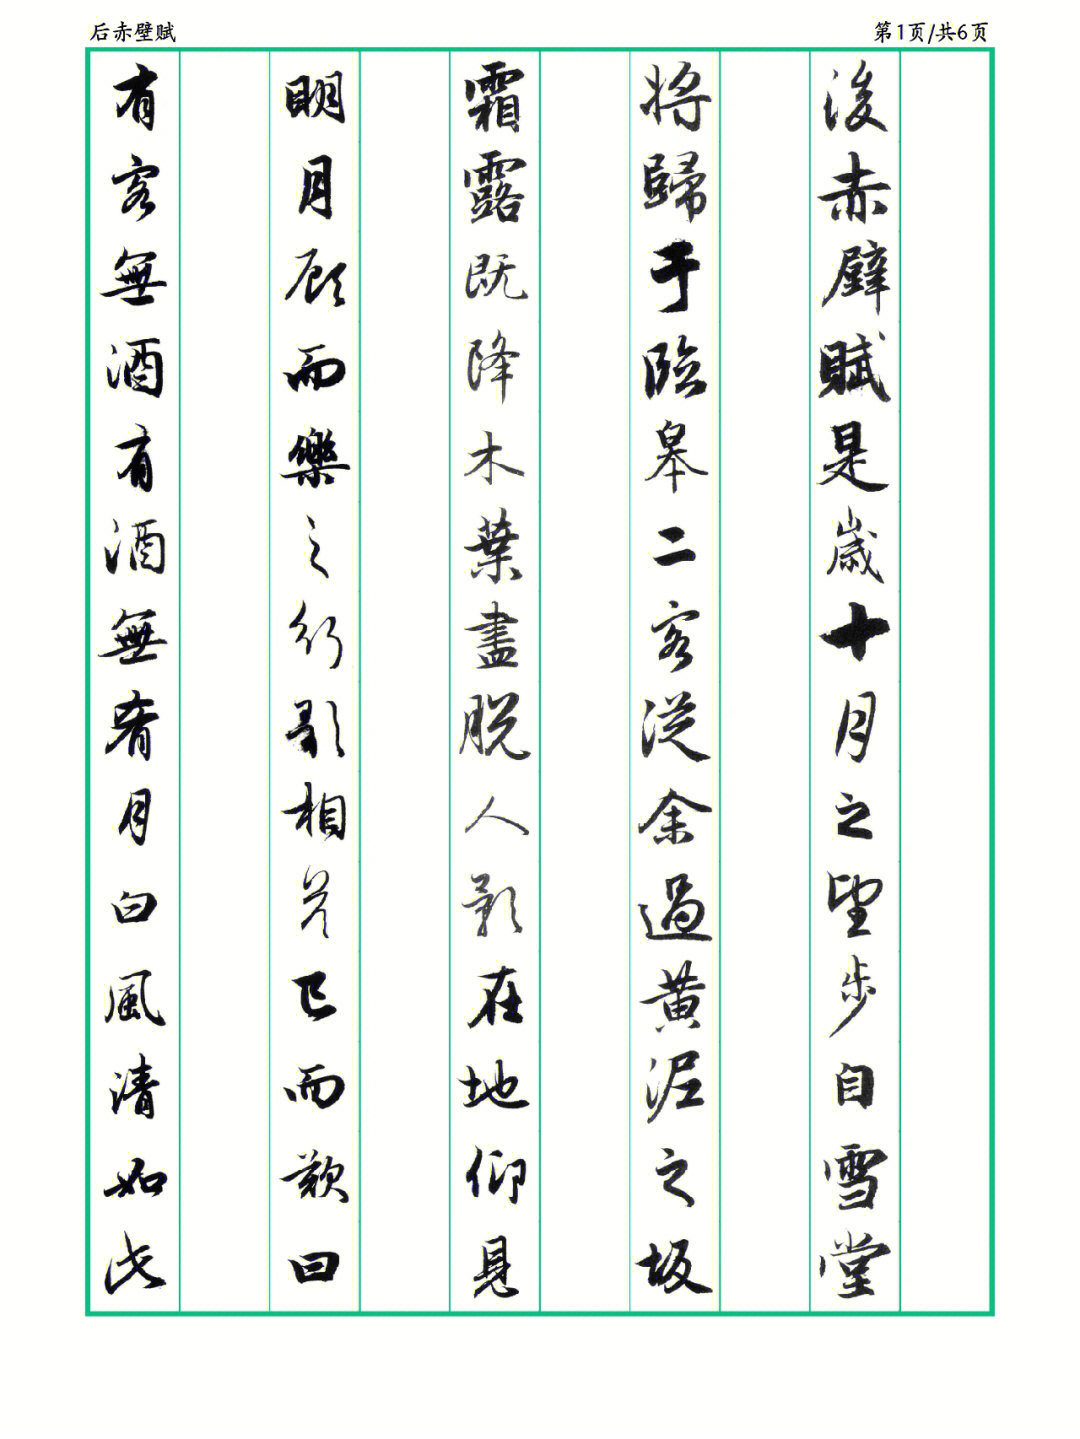 后赤壁赋
第1页/共6页
後赤壁賦是歲十月之望步自雪堂
将歸于臨皋二客從余過黄泥之坂
霜露既降木葉盡脱人影在地仰見
明月顾而樂之行歌相答已而歎曰
有客無酒有酒無肴月白風清如此